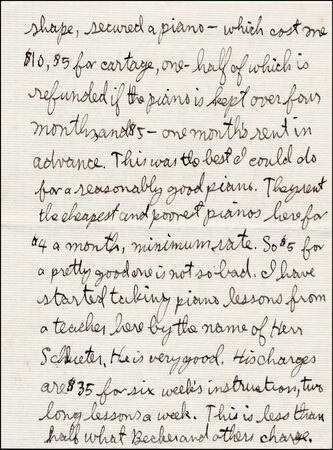 shape, secured a piano — which cost me
$10, $5 for cartage, one-half of which is
refunded if the piano is kept over four
months, and $5 — one month's rent in
advance. This was the best I could do
for a reasonably good piano. They rent
the cheapest and poorest pianos here for
$4 a month, minimum rate. So $5 for
a pretty good one is not so bad. I have
started taking piano lessons from
a teacher here by the name of Herr
Schlieter. He is very good. His charges
are $35 for six week's instruction, two
long lessons a week. This is less than
half what Becker and others charge.